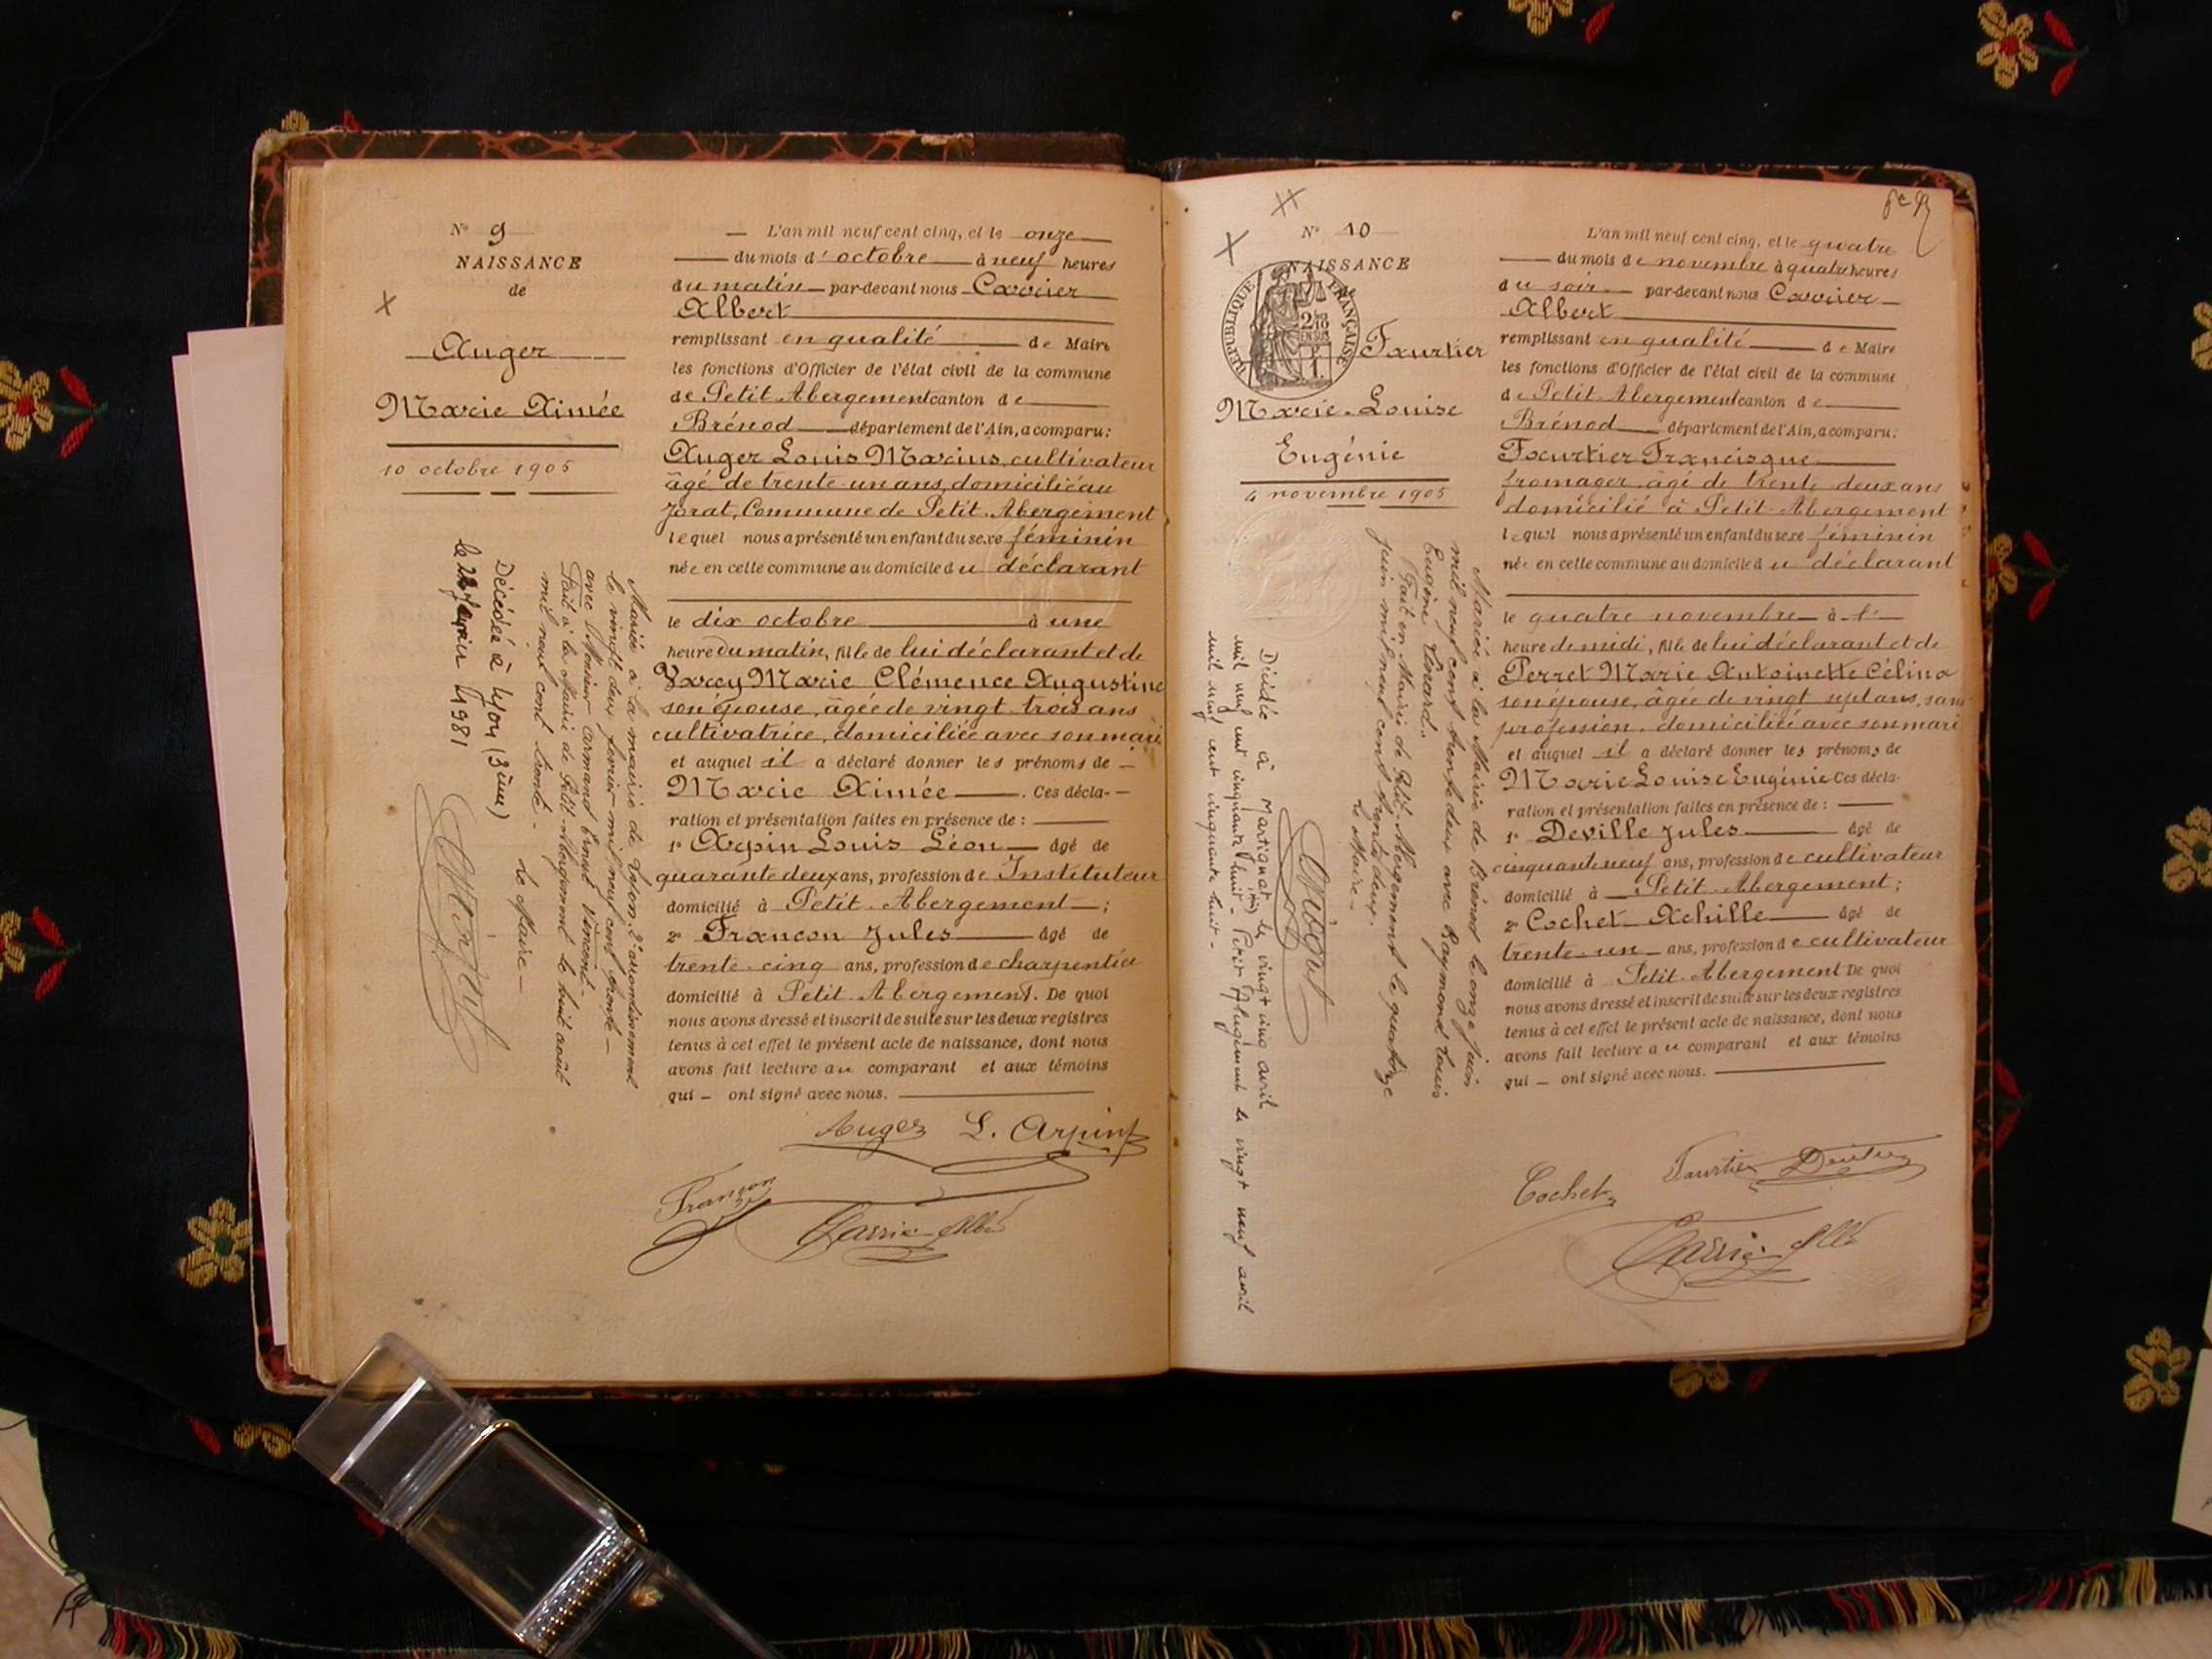 N° 9
NAISSANCE
de
Auger
Marie Aimée
10 octobre 1905
Mariée à la mairie de Lyon 2e arrondissement
le vingt deux février mil neuf cent trente -
avec Monsieur Armand Ernest Vincent.
Fait à la Mairie de Petit-Abergement le huit août
mil neuf cent trente. Le Maire -
Décédée à Lyon (3ème)
le 1981
— L'an mil neuf cent cinq, et le onze
du mois d'octobre à neuf heures
du matin par-devant nous Carrier
Albert
remplissant en qualité de Maire
les fonctions d'Officier de l'état civil de la commune
de Petit-Abergement canton de
Brénod département de l'Ain, a comparu:
Auger Louis Marius, cultivateur
âgé de trente-un ans, domicilié au
Jorat, Commune de Petit-Abergement
lequel nous a présenté un enfant du sexe féminin
née en cette commune au domicile du déclarant
le dix octobre à une
heure du matin, fille de lui déclarant et de
Varey Marie Clémence Augustine
son épouse, âgée de vingt-trois ans
cultivatrice, domiciliée avec son mari
et auquel il a déclaré donner les prénoms de —
Marie Aimée. Ces décla-
ration et présentation faites en présence de :
1° Arpin Louis Léon âgé de
quarante deux ans, profession de Instituteur
domicilié à Petit-Abergement ;
2° Françon Jules âgé de
trente-cinq ans, profession de charpentier
domicilié à Petit-Abergement. De quoi
nous avons dressé et inscrit de suite sur les deux registres
tenus à cet effet le présent acte de naissance, dont nous
avons fait lecture au comparant et aux témoins
qui — ont signé avec nous.
Auger L. Arpin
Françon
Carrier Albt
N° 10
NAISSANCE
RÉPUBLIQUE FRANÇAISE
2/10 EN SUS
Fourtier
Marie-Louise
Eugénie
4 novembre 1905
Mariée à la Mairie de Brénod le onze juin
mil neuf cent trente deux avec Raymond Louis
Eugène
Fait en Mairie de Petit-Abergement le quatorze
juin mil neuf cent trente deux.
Le Maire -
Décédée à Martignat (Ain) le vingt cinq avril
mil neuf cent cinquante huit - Petit Abergement le vingt neuf avril
mil neuf cent cinquante huit -
L'an mil neuf cent cinq, et le quatre
du mois de novembre à quatre heures
du soir par-devant nous Carrier
Albert
remplissant en qualité de Maire
les fonctions d'Officier de l'état civil de la commune
de Petit-Abergement canton de
Brénod département de l'Ain, a comparu:
Fourtier Francisque
fromager, âgé de trente-deux ans
domicilié à Petit-Abergement
lequel nous a présenté un enfant du sexe féminin
née en cette commune au domicile du déclarant
le quatre novembre à l'
heure de midi, fille de lui déclarant et de
Perret Marie Antoinette Célina
son épouse, âgée de vingt sept ans, sans
profession, domiciliée avec son mari
et auquel il a déclaré donner les prénoms de
Marie Louise Eugénie Ces décla-
ration et présentation faites en présence de :
1° Deville Jules âgé de
cinquante neuf ans, profession de cultivateur
domicilié à Petit-Abergement ;
2° Cochet Achille âgé de
trente-un ans, profession de cultivateur
domicilié à Petit-Abergement De quoi
nous avons dressé et inscrit de suite sur les deux registres
tenus à cet effet le présent acte de naissance, dont nous
avons fait lecture au comparant et aux témoins
qui — ont signé avec nous.
Cochet Fourtier
Carrier Albt